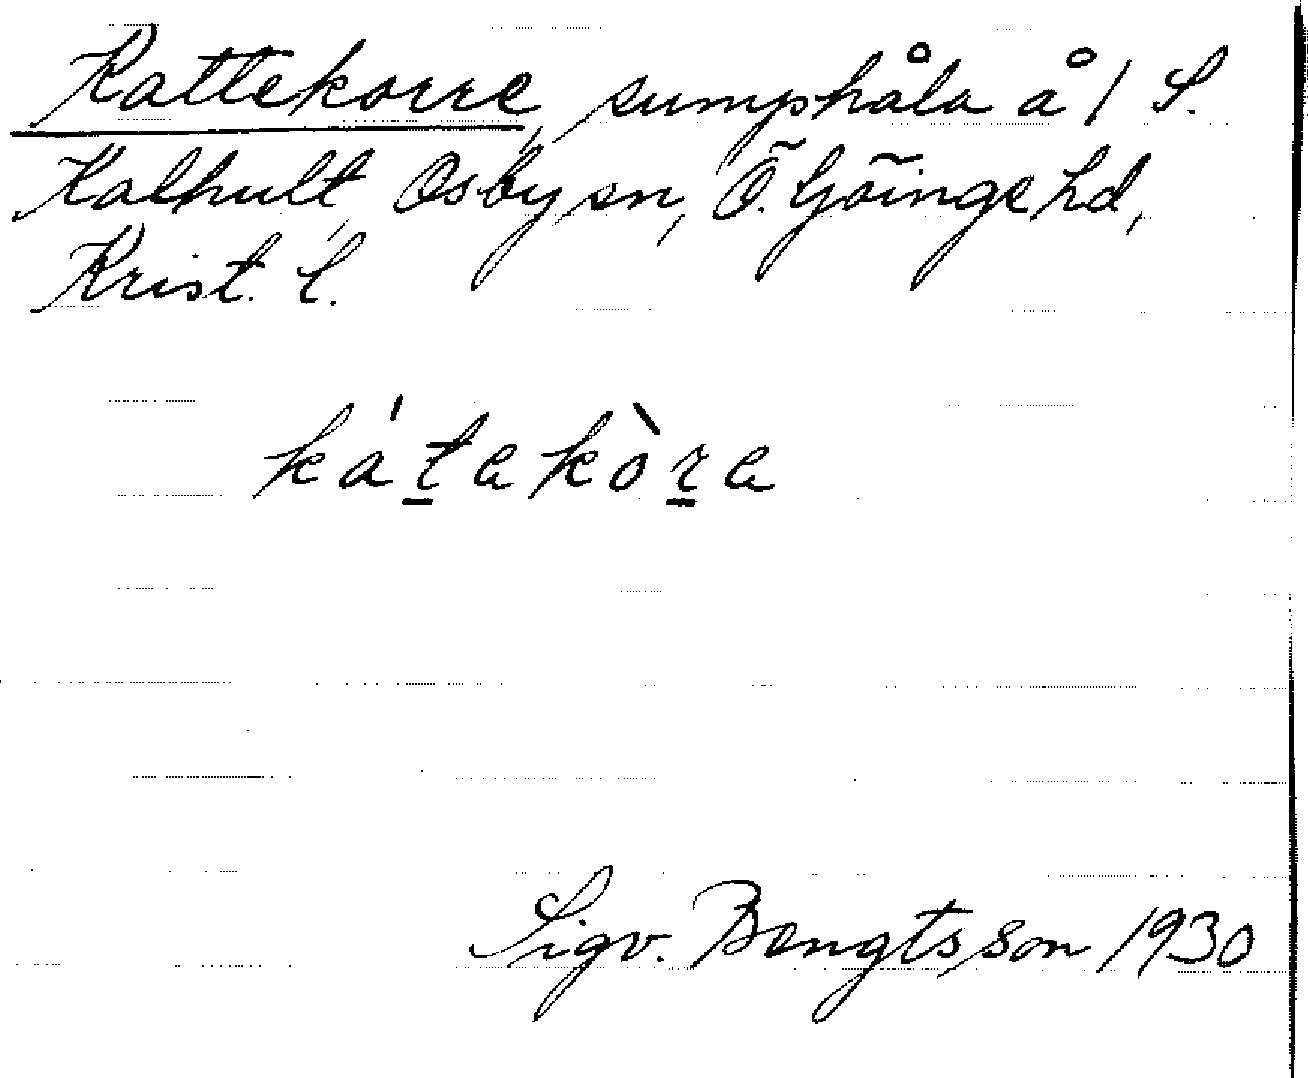 Kattekorre, sumphåla å 1 S.
Kalhult, Osby sn, Ö. Göinge hd,
Krist. l.
ká́t̲ekòr̲e
Sigv. Bengtsson 1930